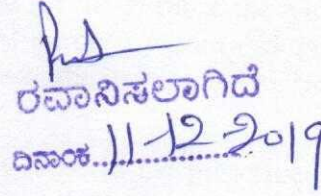 ರವಾನಿಸಲಾಗಿದೆ
ದಿನಾಂಕ..11-12-2019